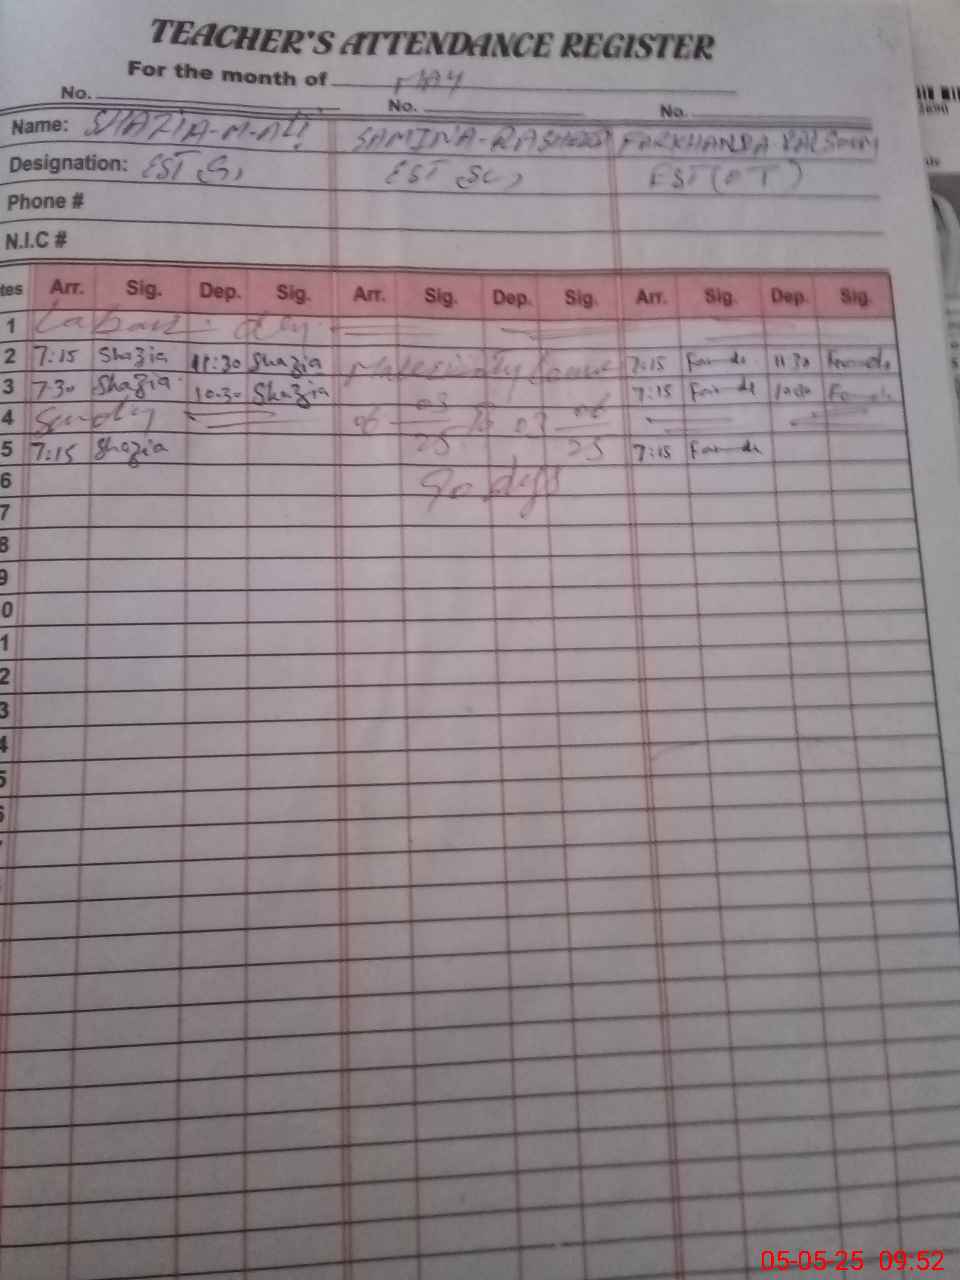 TEACHER'S ATTENDANCE REGISTER
For the month of MAY
No. No. No.
Name: SHAZIA-M-ALI SAMINA-RASHEED FARKHANDA KALSOOM
Designation: EST EST SC) EST (OT)
Phone #
N.I.C #
tes Arr. Sig. Dep. Sig. Arr. Sig. Dep. Sig. Arr. Sig. Dep. Sig.
1 Labour day
2 7:15 Shazia 11:30 Shazia leave 7:15 11 30
3 7:30 Shazia 10:30 Shazia 03 7:15
4 Sunday 06 03 06
5 7:15 Shazia 25 25 7:15
6 90 days
7
8
9
0
1
2
3
4
5
6
05-05-25 09:52